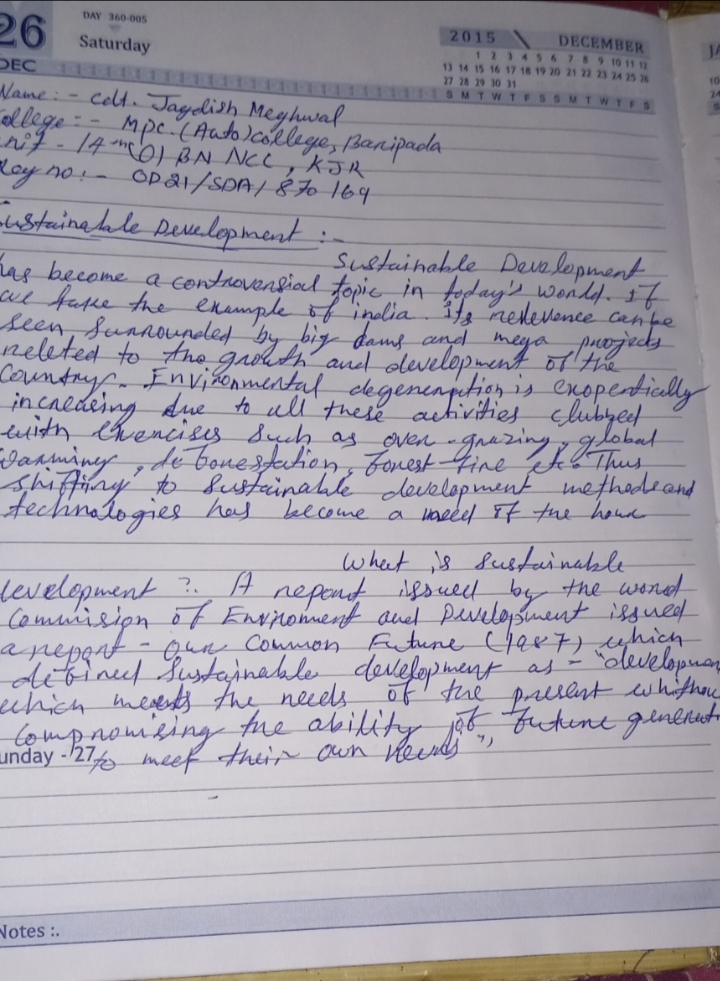 26
DAY 360-005
Saturday
DEC
2015 DECEMBER
1 2 3 4 5 6 7 8 9 10 11 12
13 14 15 16 17 18 19 20 21 22 23 24 25 26
27 28 29 30 31
S M T W T F S S M T W T F S
Name:- Cdt. Jagdish Meghwal
College:- MPC.(Auto)college, Baripada
unit - 14 (O) BN NCC, KJR
Reg no:- OD21/SDA/870169
Sustainable Development :-
Sustainable Development
has become a controversial topic in today's world. If
we take the example of india. its relevence can be
seen surrounded by big dams and mega projects
releted to the growth and development of the
Country. Environmental degeneration is exopentically
increasing due to all these activities clubbed
with exercises such as over-grazing, global
warming, deforestation, forest-fire etc. Thus
shifting to sustainable development methods and
technologies has become a need of the hour
What is sustainable
development ?. A report issued by the world
Commision of Environment and Development issued
a report - our Common Future (1987) which
defined sustainable development as - "developmen
which meets the needs of the present whithou
compromising the ability of future generat
Sunday - 27
to meet their own needs",
Notes :.